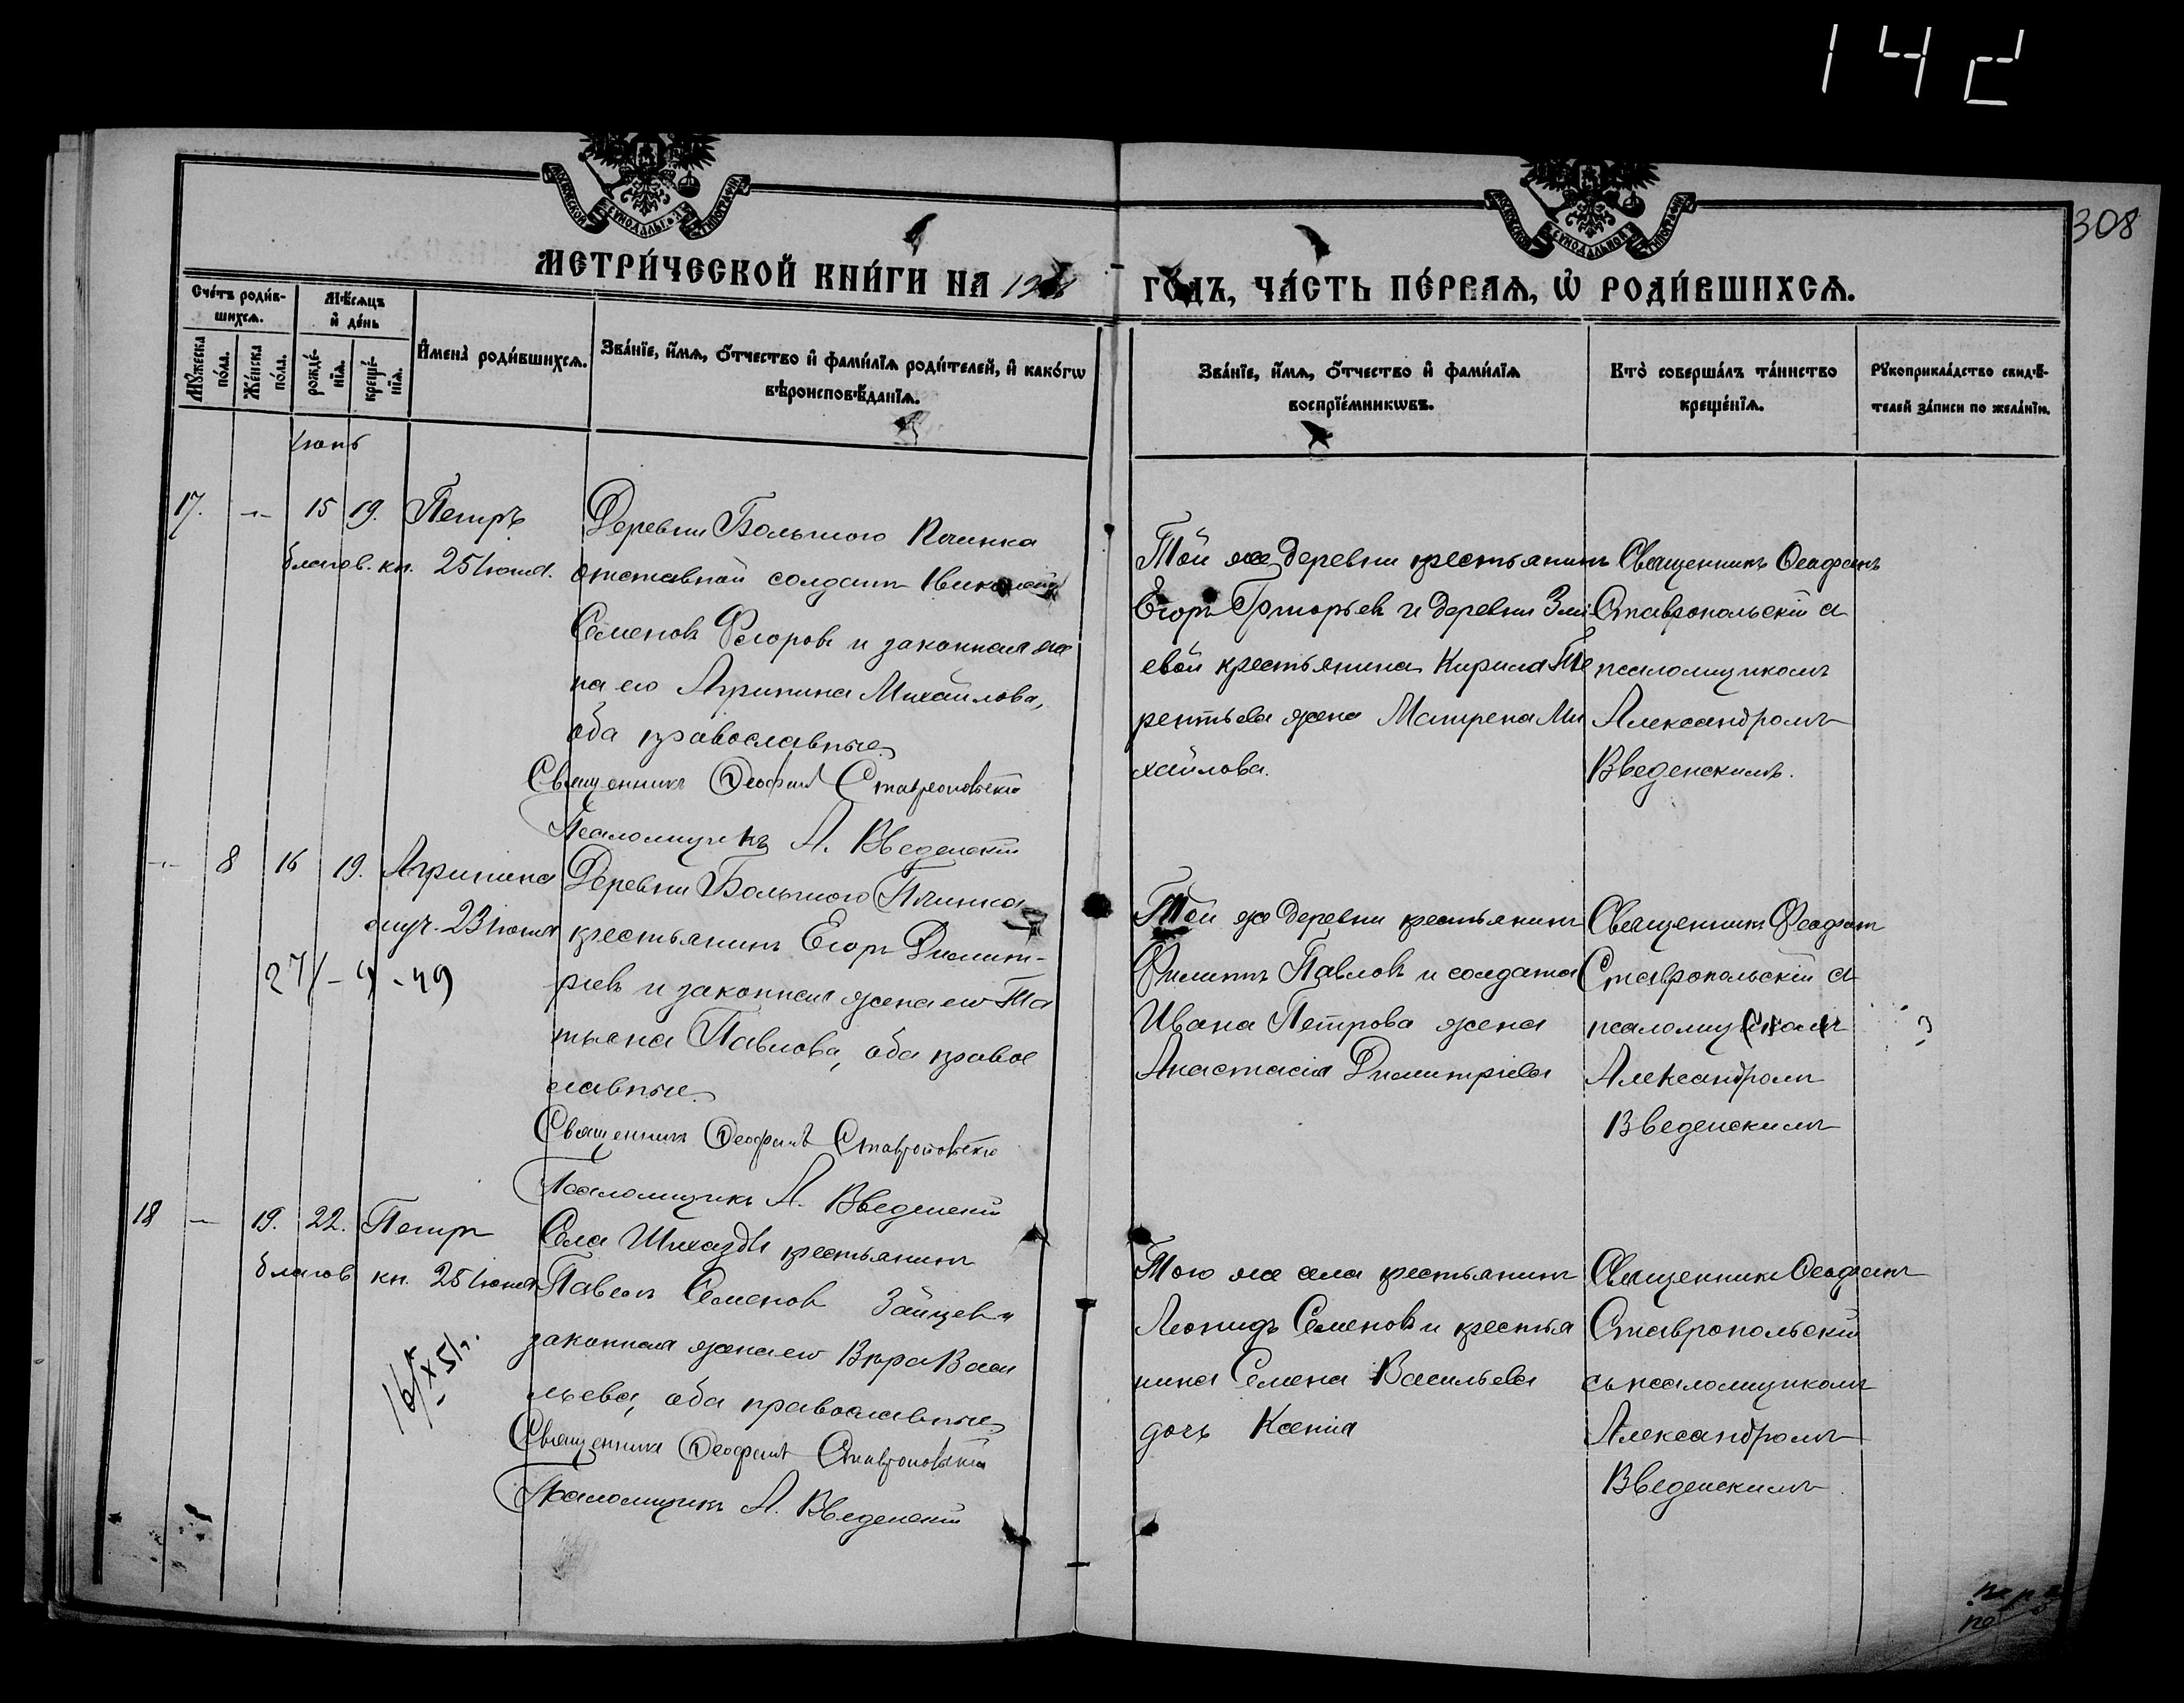 142
308
МЕТРИ́ЧЕСКОЙ КНИ́ГИ НА
ГО́ДЪ, ЧА́СТЬ ПЕ́РВАѦ, Ѡ҆ РОДИ́ВШИХСѦ.
Сче́тъ роди́в-
шихсѧ.
Мѣ́сѧцъ
и҆ де́нь
Мꙋ́жеска
по́ла.
Же́нска
по́ла.
рожде́-
нїѧ.
креще́-
нїѧ.
И҆мена̀ роди́вшихсѧ.
Зва́нїе, и҆́мѧ, ѻ҆́тчество и҆ фами́лїѧ роди́телей, и҆ како́гѡ
вѣроисповѣ́данїѧ.
Зва́нїе, и҆́мѧ, ѻ҆́тчество и҆ фами́лїѧ
воспрїе́мникѡвъ.
Кто̀ соверша́лъ та́инство
креще́нїѧ.
Рꙋкоприкла́дство свидѣ́-
телей за́писи по жела́нїю.
Іюнь
17. -„- 15 19. Петръ
благов. кн. 25 Іюня.
Деревни Большого Починка
отставной солдатъ Николай
Семеновъ Федоровъ и законная же
на его Агрипина Михайлова,
оба православные.
Священникъ Ѳеофанъ Ставропольскій
Псаломщикъ А. Введенскій
Той же деревни крестьянинъ
Егоръ Григорьевъ и деревни
евой крестьянина Кирила Те
рентьева жена Матрена Ми
хайлова.
Священникъ Ѳеофанъ
Ставропольскій съ
псаломщикомъ
Александромъ
Введенскимъ.
-„- 8 16 19. Агрипина
23 Іюня
27/-4-49
Деревни Большого Починка
крестьянинъ Егоръ Димит-
ріевъ и законная жена его Та
тьяна Павлова, оба правос
лавные.
Священникъ Ѳеофанъ Ставропольскій
Псаломщикъ А. Введенскій
Той же деревни крестьянинъ
Филиппъ Павловъ и солдата
Ивана Петрова жена
Анастасія Димитріева
Священникъ Ѳеофанъ
Ставропольскій съ
псаломщикомъ
Александромъ
Введенскимъ
18 -„- 19. 22. Петръ
благов. кн. 25 Іюня
Села Шихазды крестьянинъ
Павелъ Семеновъ Зайцевъ и
законная жена его Вѣра Васи
льева, оба православные.
Священникъ Ѳеофанъ Ставропольскій
Псаломщикъ А. Введенскій
Того же села крестьянинъ
Леонидъ Семеновъ и крестья
нина Семена Васильева
дочь Ксенія
Священникъ Ѳеофанъ
Ставропольскій
съ псаломщикомъ
Александромъ
Введенскимъ